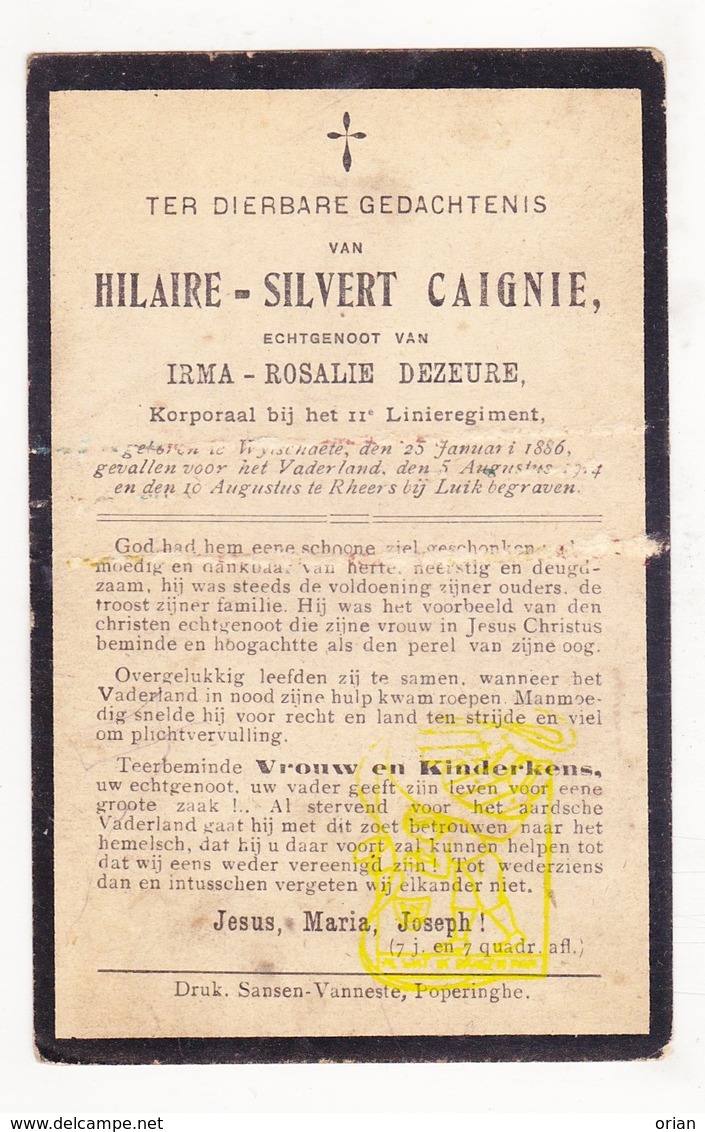 TER DIERBARE GEDACHTENIS
VAN
HILAIRE - SILVERT CAIGNIE,
ECHTGENOOT VAN
IRMA - ROSALIE DEZEURE,
Korporaal bij het 11e Linieregiment,
geboren te Wytschaete, den 25 Januari 1886,
gevallen voor het Vaderland, den 5 Augustus 1914
en den 10 Augustus te Rheers bij Luik begraven.
God had hem eene schoone ziel geschonken
moedig en dankbaar van herte, neerstig en deugd-
zaam, hij was steeds de voldoening zijner ouders, de
troost zijner familie. Hij was het voorbeeld van den
christen echtgenoot die zijne vrouw in Jesus Christus
beminde en hoogachtte als den perel van zijne oog.
Overgelukkig leefden zij te samen, wanneer het
Vaderland in nood zijne hulp kwam roepen. Manmoe-
dig snelde hij voor recht en land ten strijde en viel
om plichtvervulling.
Teerbeminde Vrouw en Kinderkens,
uw echtgenoot, uw vader geeft zijn leven voor eene
groote zaak !.. Al stervend voor het aardsche
Vaderland gaat hij met dit zoet betrouwen naar het
hemelsch, dat hij u daar voort zal kunnen helpen tot
dat wij eens weder vereenigd zijn ! Tot wederziens
dan en intusschen vergeten wij elkander niet.
Jesus, Maria, Joseph !
(7 j. en 7 quadr. afl.)
Druk. Sansen-Vanneste, Poperinghe.
delcampe.net
orian